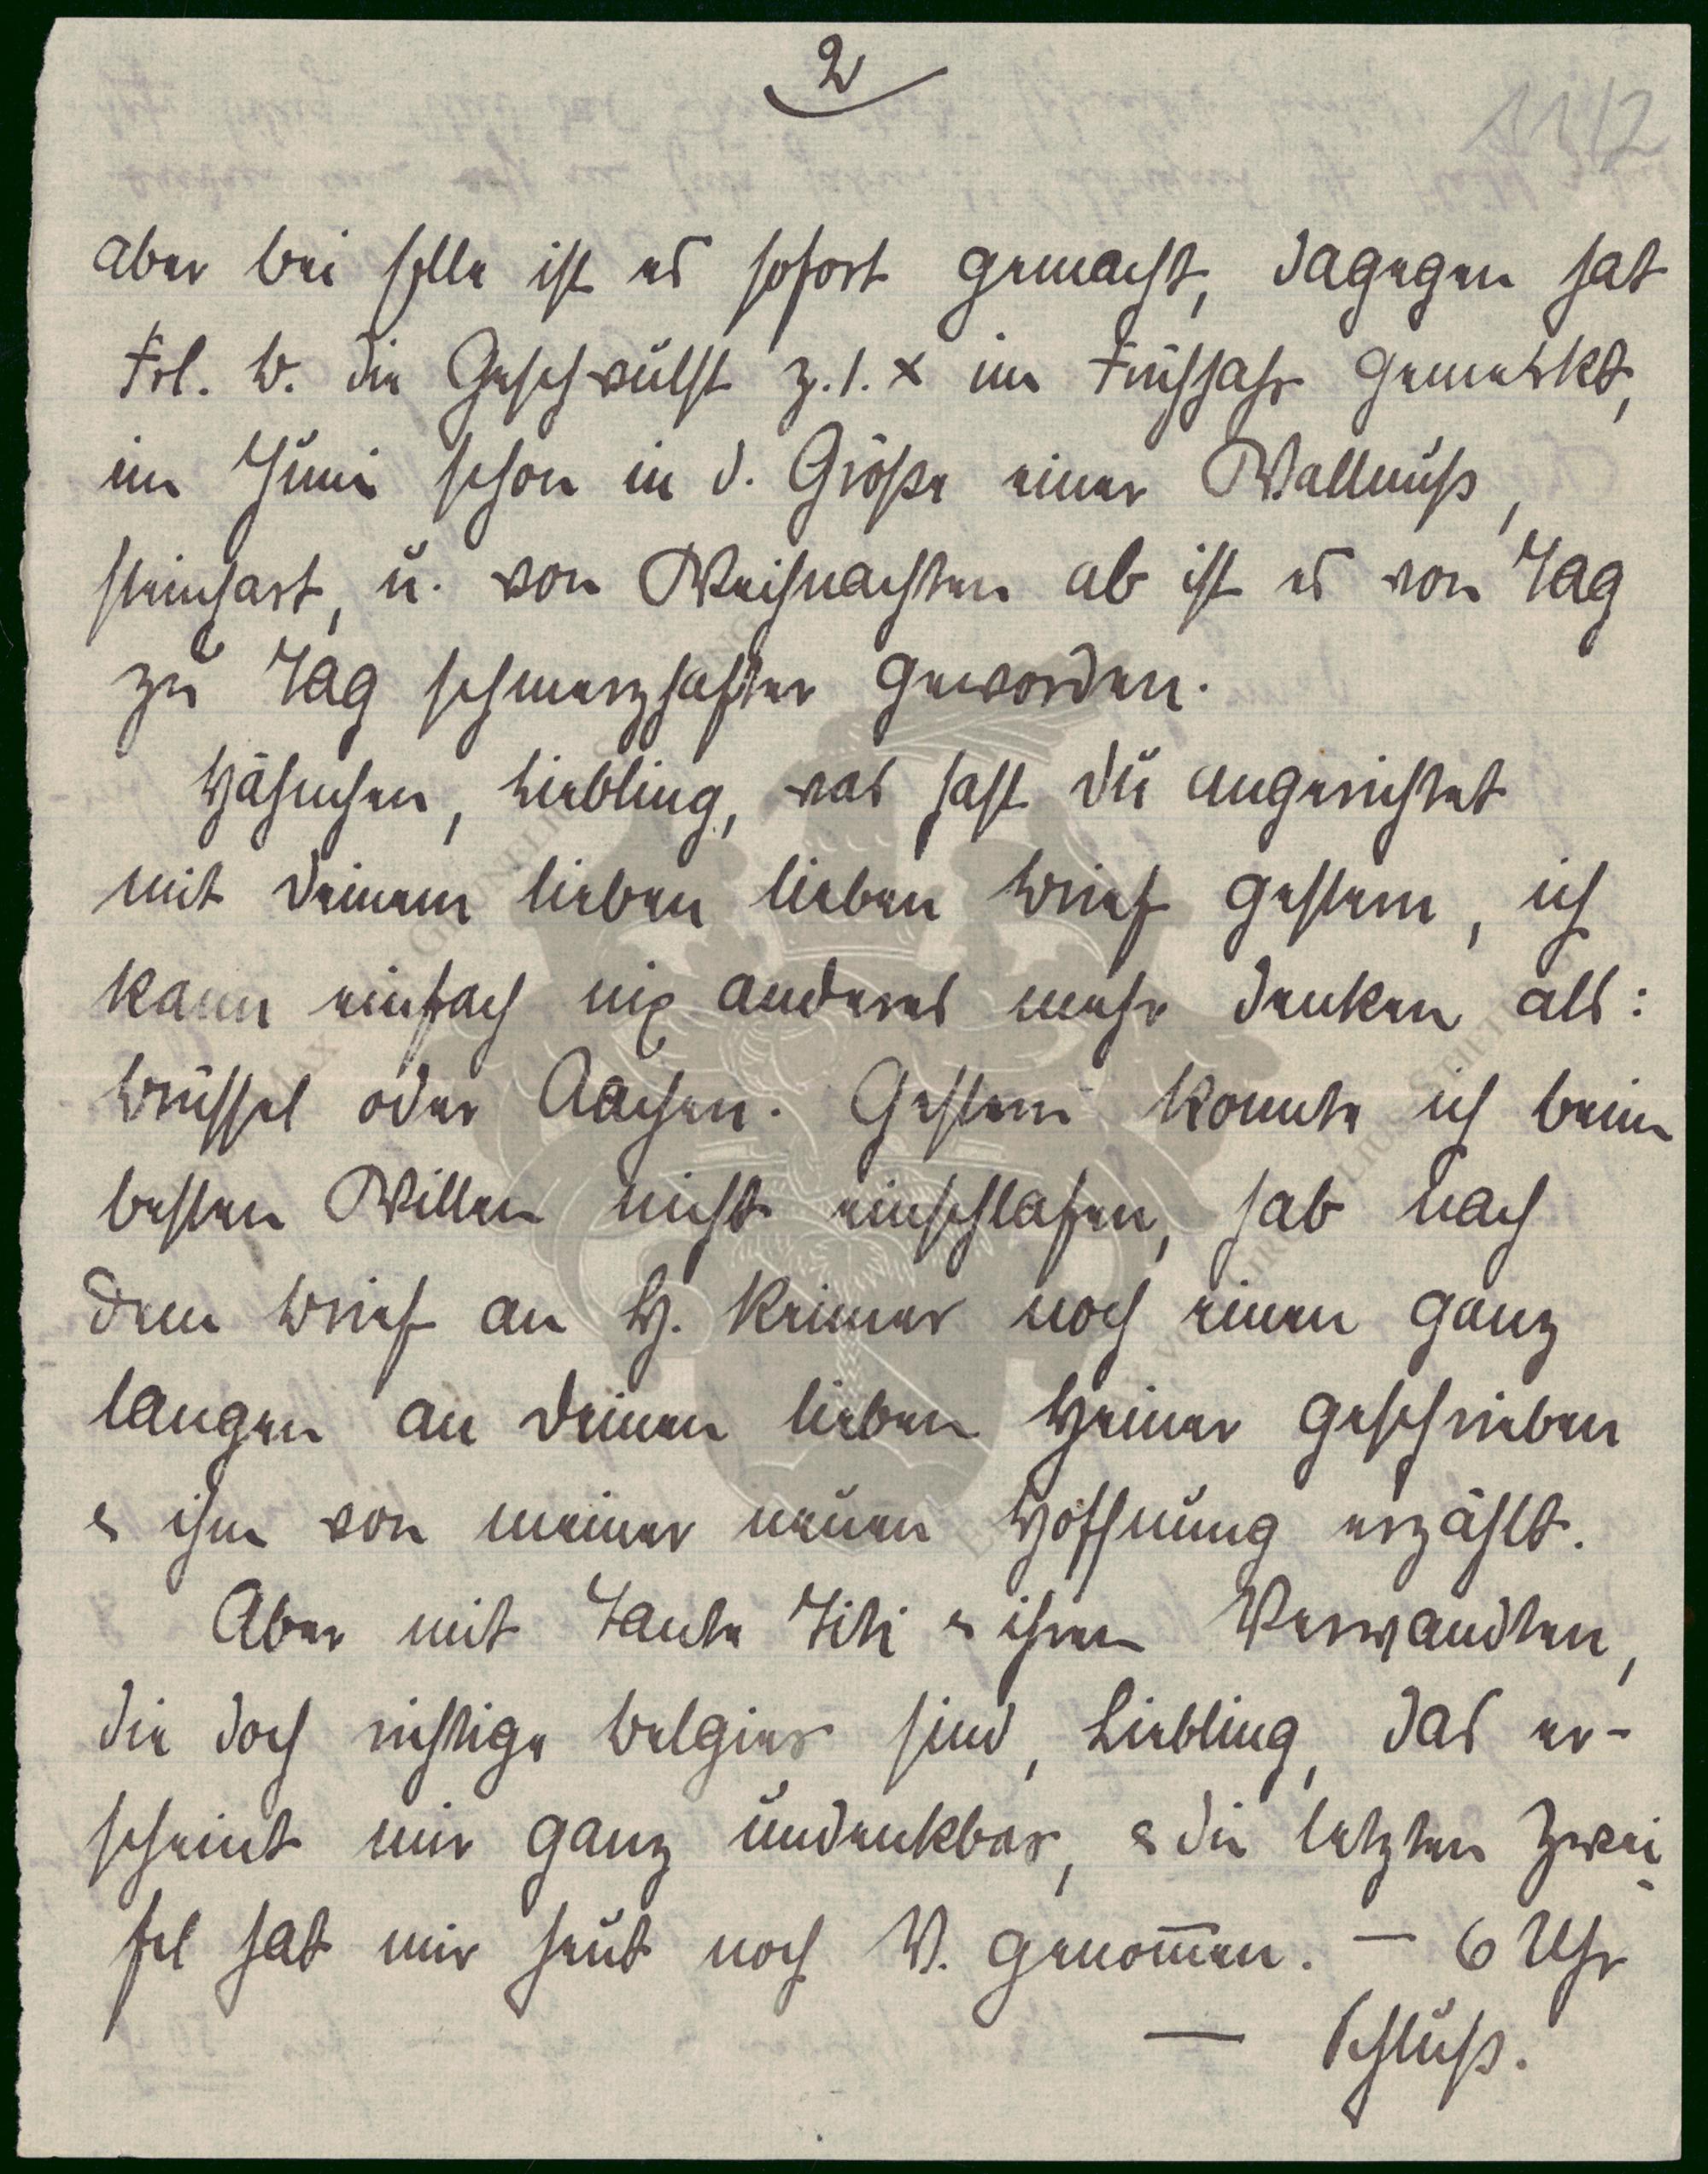 2
1112
aber bei Elle ist es sofort gemacht, dagegen hat
Frl. B. die Geschwulst z. 1. x im Frühjahr gemerkt,
im Juni schon in d. Größe einer Wallnuß,
steinhart, u. von Weihnachten ab ist es von Tag
zu Tag schmerzhafter geworden.
Hähnchen, Liebling, was hast du angerichtet
mit deinem lieben lieben Brief gestern, ich
kann einfach nix anderes mehr denken als:
Brüssel oder Aachen. Gestern konnte ich beim
besten Willen nicht einschlafen, hab nach
dem Brief an H. Reimer noch einen ganz
langen an deinen lieben Heiner geschrieben
& ihm von meiner neuen Hoffnung erzählt.
Aber mit Tante Titi & ihren Verwandten,
die doch richtige Belgier sind, Liebling, das er-
scheint mir ganz undenkbar, & die letzten Zwei-
fel hat mir heut noch V. genom̄en. — 6 Uhr
— Schluß.